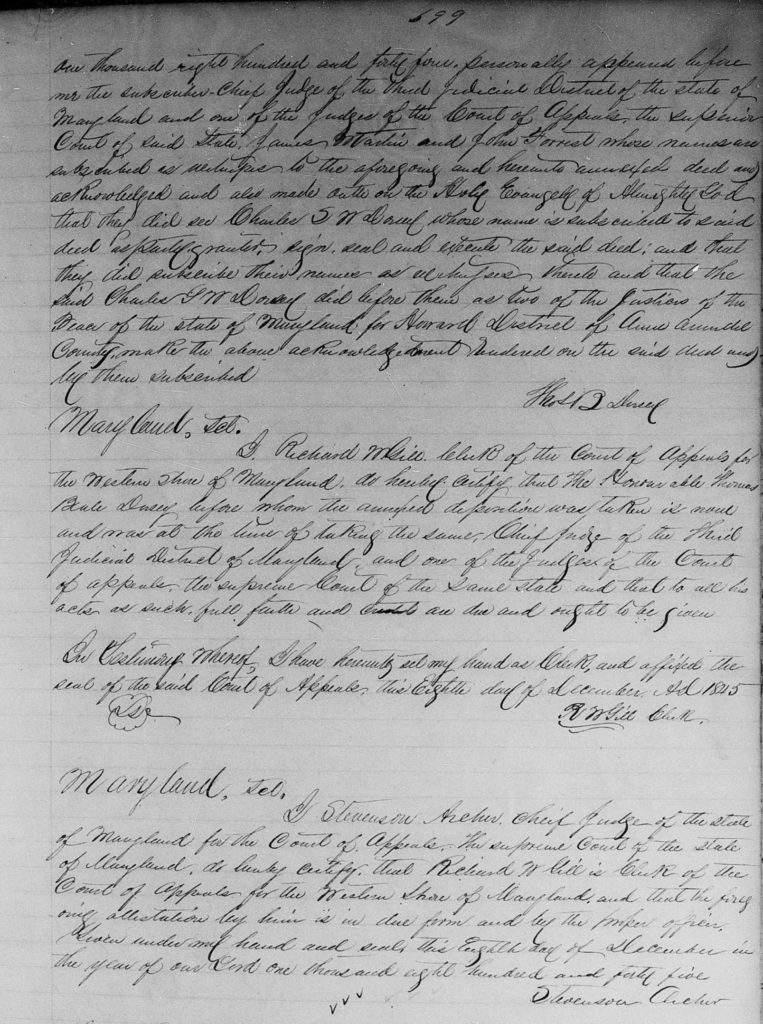 599
one thousand eight hundred and forty four. personally appeared before
me the subscriber Chief Judge of the third Judicial District of the state of
Maryland and one of the Judges of the Court of Appeals, the superior
Court of said State, James Martin and John Forrest whose names are
subscribed as witnesses to the aforegoing and hereunto annexed deed and
acknowledged and also made oath on the Holy Evangely of Almighty God
that they did see Charles S W Dorsey whose name is subscribed to said
deed as party grantor, sign, seal and execute the said deed; and that
they did subscribe their names as witnesses thereto and that the
said Charles S W Dorsey did before them as two of the Justices of the
Peace of the state of Maryland for Howard District of Anne Arundel
County, make the above acknowledgement endorsed on the said deed and
by them subscribed
Thos B Dorsey
Maryland, Sct.
I, Richard W Gill, Clerk of the Court of Appeals for
the Western Shore of Maryland, do hereby certify that The Honorable Thomas
Beale Dorsey before whom the annexed deposition was taken is now
and was at the time of taking the same, Chief Judge of the Third
Judicial District of Maryland, and one of the Judges of the Court
of appeals, the supreme Court of the Same state and that to all his
acts as such, full faith and credit are due and ought to be given
In Testimony Whereof, I have hereunto set my hand as Clerk, and affixed the
seal of the said Court of Appeals, this Eighth day of December AD 1845
R W Gill Clerk.
Maryland, Sct.
I Stevenson Archer, Cheif Judge of the state
of Maryland for the Court of Appeals, the supreme Court of the state
of Maryland, do hereby certify, that Richard W Gill is Clerk of the
Court of Appeals for the Western Shore of Maryland, and that the foreg
oing attestation by him is in due form and by the proper officer.
Given under my hand and seal, this Eighth day of December in
the year of our Lord one thousand eight hundred and forty five
Stevenson Archer